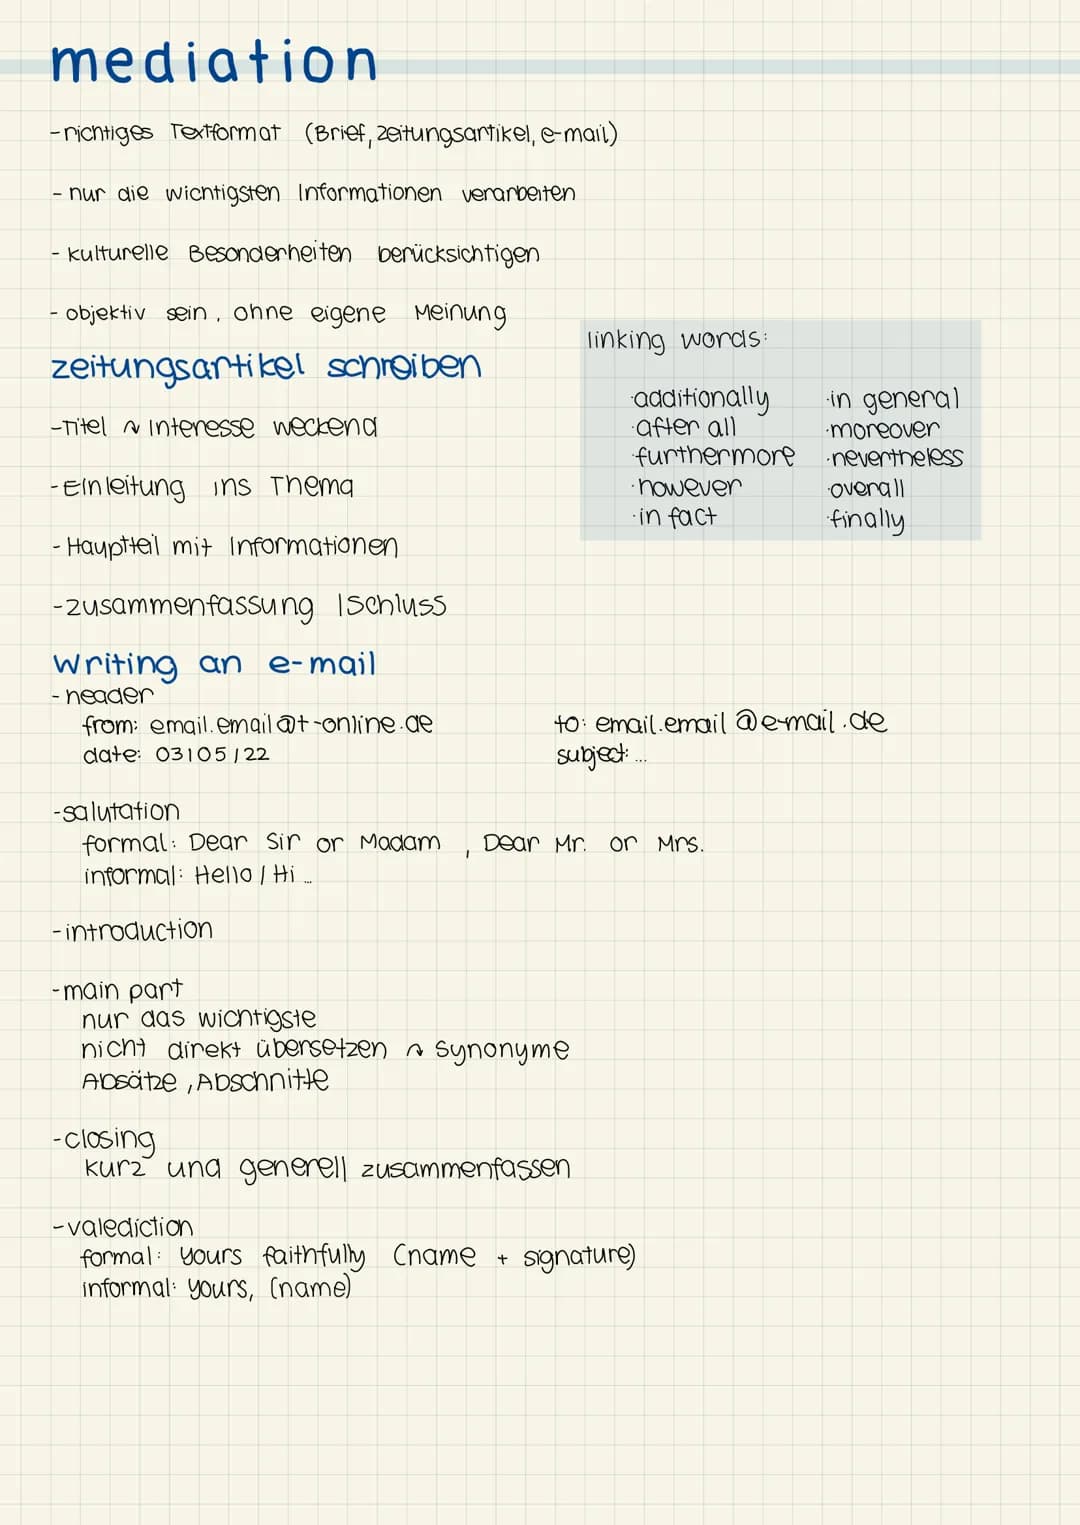 mediation
-richtiges Textformat (Brief, Zeitungsartikel, e-mail)
- nur die wichtigsten Informationen verarbeiten
- kulturelle Besonderheiten berücksichtigen
- objektiv sein, ohne eigene Meinung
zeitungsartikel schreiben
-Titel ↷ Interesse weckend
-Einleitung ins Thema
- Hauptteil mit Informationen
-zusammenfassung |Schluss
linking words:
·additionally
·after all
·furthermore
·however
·in fact
·in general
·moreover
·nevertheless
·overall
·finally
Writing an e-mail
-header
from: email.email@t-online.de
to: email.email@e-mail.de
date: 03|05|22
subject: ...
-salutation
formal: Dear Sir or Madam , Dear Mr. or Mrs.
informal: Hello / Hi ...
-introduction
-main part
nur das wichtigste
nicht direkt übersetzen ↷ Synonyme
Absätze, Abschnitte
-closing
kurz und generell zusammenfassen
-valediction
formal: Yours faithfully (name + signature)
informal: yours, (name)